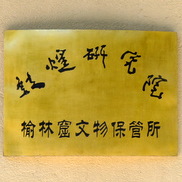 敦煌研究院
榆林窟文物保管所